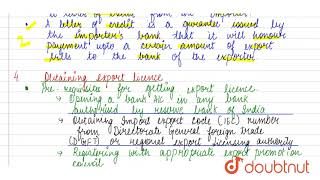 a letter of credit from an importer.
A letter of credit is a guarantee issued by
the importer's bank that it will honour
payment upto a certain amount of export
bills to the bank of the exporter
4 Obtaining export licence
Pre-requisite for getting export licence
→ Opening a bank A/c in any bank
authorised by reserve bank of India
→ Obtaining Import export code (IEC) number
from Directorate General foreign trade
(DGFT) or regional export licensing authority
→ Registering with appropriate export promotion
council
doubtnut